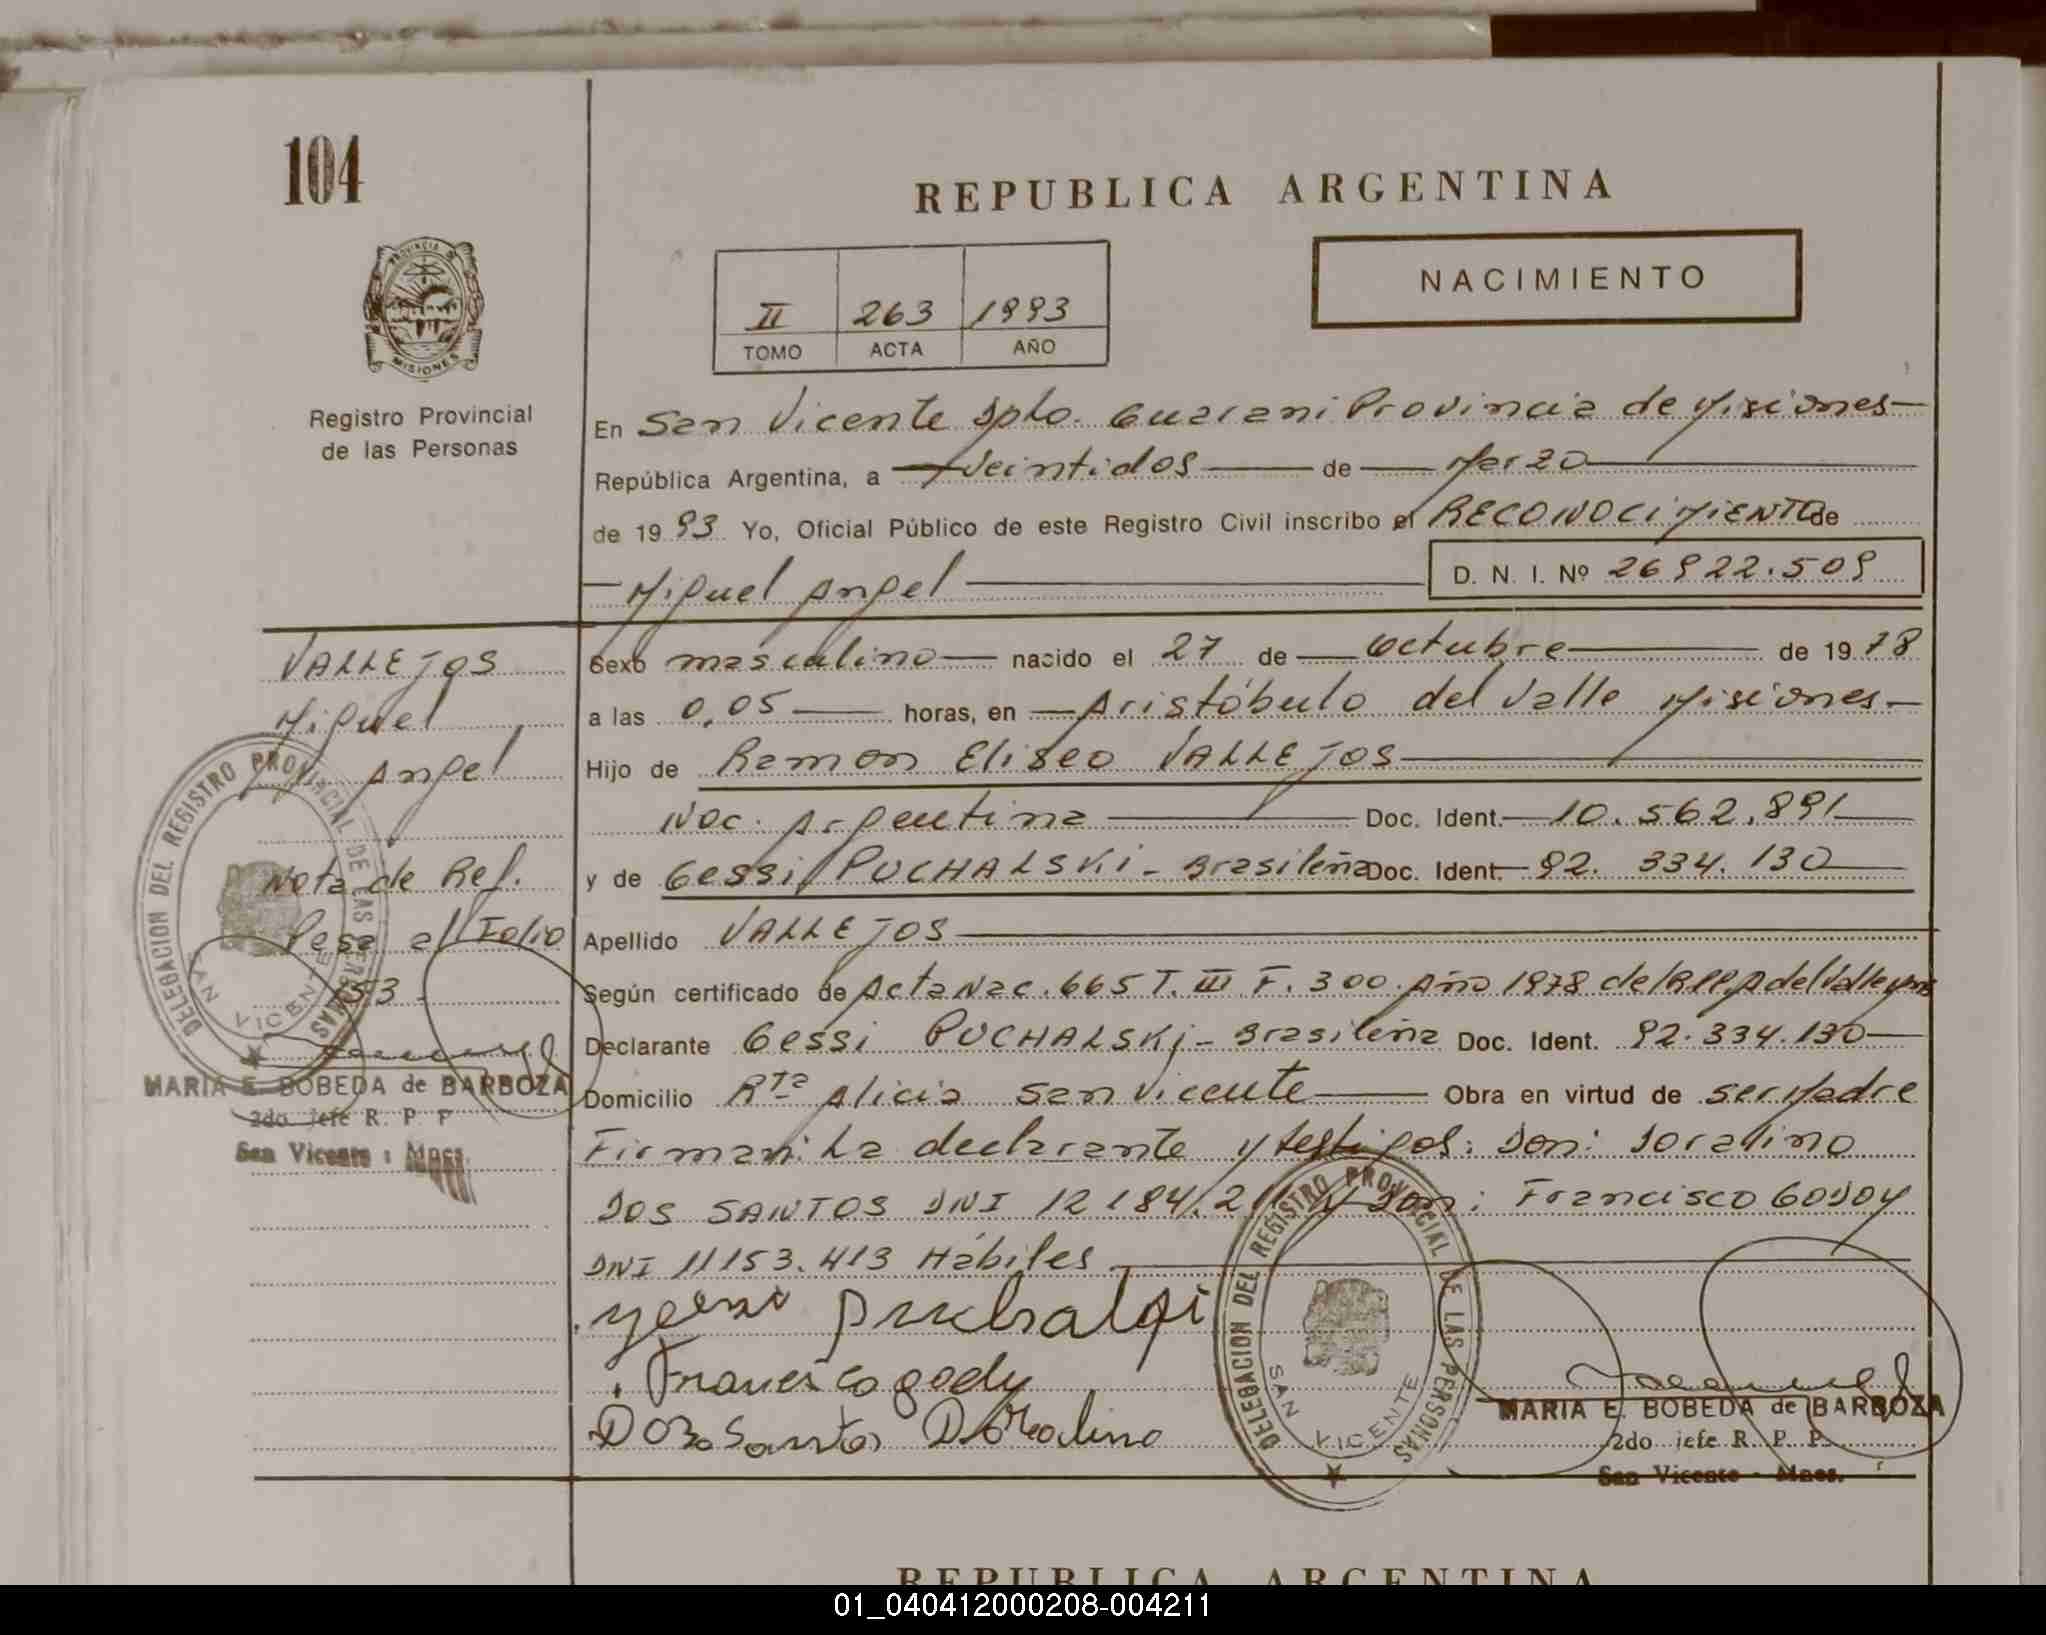 104
REPUBLICA ARGENTINA
NACIMIENTO
II 263 1993
TOMO ACTA AÑO
PROVINCIA DE
MISIONES
Registro Provincial
de las Personas
En San Vicente Dpto. Guarani Provincia de Misiones
República Argentina, a veintidos de Marzo
de 1993 Yo, Oficial Público de este Registro Civil inscribo el RECONOCIMIENTO de
Miguel Angel D. N. I. Nº 26922.509
VALLEJOS
Miguel
Angel
Nota de Ref.
Pasa al Folio
153
MARIA E. BOBEDA de BARBOZA
2do jefe R. P. P
San Vicente : Mnes.
DELEGACION DEL REGISTRO PROVINCIAL DE LAS PERSONAS
SAN VICENTE
Sexo masculino nacido el 27 de Octubre de 1978
a las 0,05 horas, en Aristóbulo del Valle Misiones
Hijo de Ramon Eliseo VALLEJOS
Nac. Argentina Doc. Ident. 10.562.891
y de Gessi PUCHALSKI - Brasileña Doc. Ident. 92.334.130
Apellido VALLEJOS
Según certificado de Acta Nac. 665 T. III F. 300 Año 1978 del R.P.P. A del Valle Mnes
Declarante Gessi PUCHALSKI - Brasileña Doc. Ident. 92.334.130
Domicilio Rta Alicia San Vicente Obra en virtud de ser Madre
Firman: La declarante y testigos: Don: Doralino
DOS SANTOS DNI 12184.2 y Don: Francisco GODOY
DNI 11153.413 Hábiles
Francisco gody
Dos Santos Doralino
DELEGACION DEL REGISTRO PROVINCIAL DE LAS PERSONAS
SAN VICENTE
MARIA E. BOBEDA de BARBOZA
2do jefe R. P. P.
San Vicente - Mnes.
REPUBLICA ARGENTINA
01_040412000208-004211